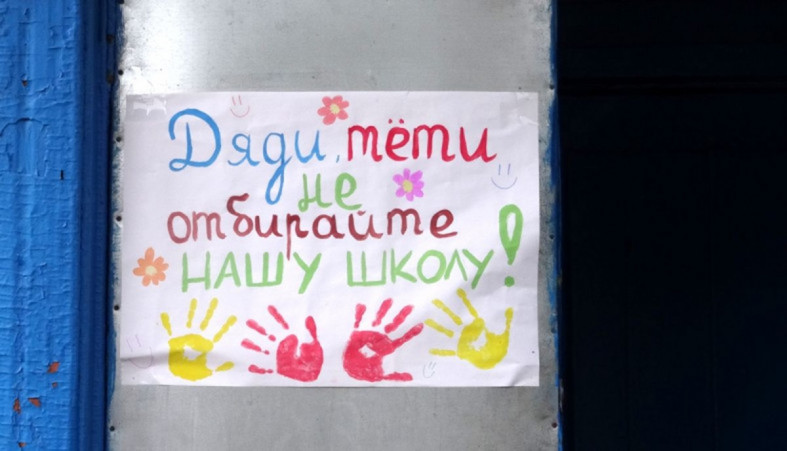 Дяди, тёти
не
отбирайте
НАШУ ШКОЛУ!